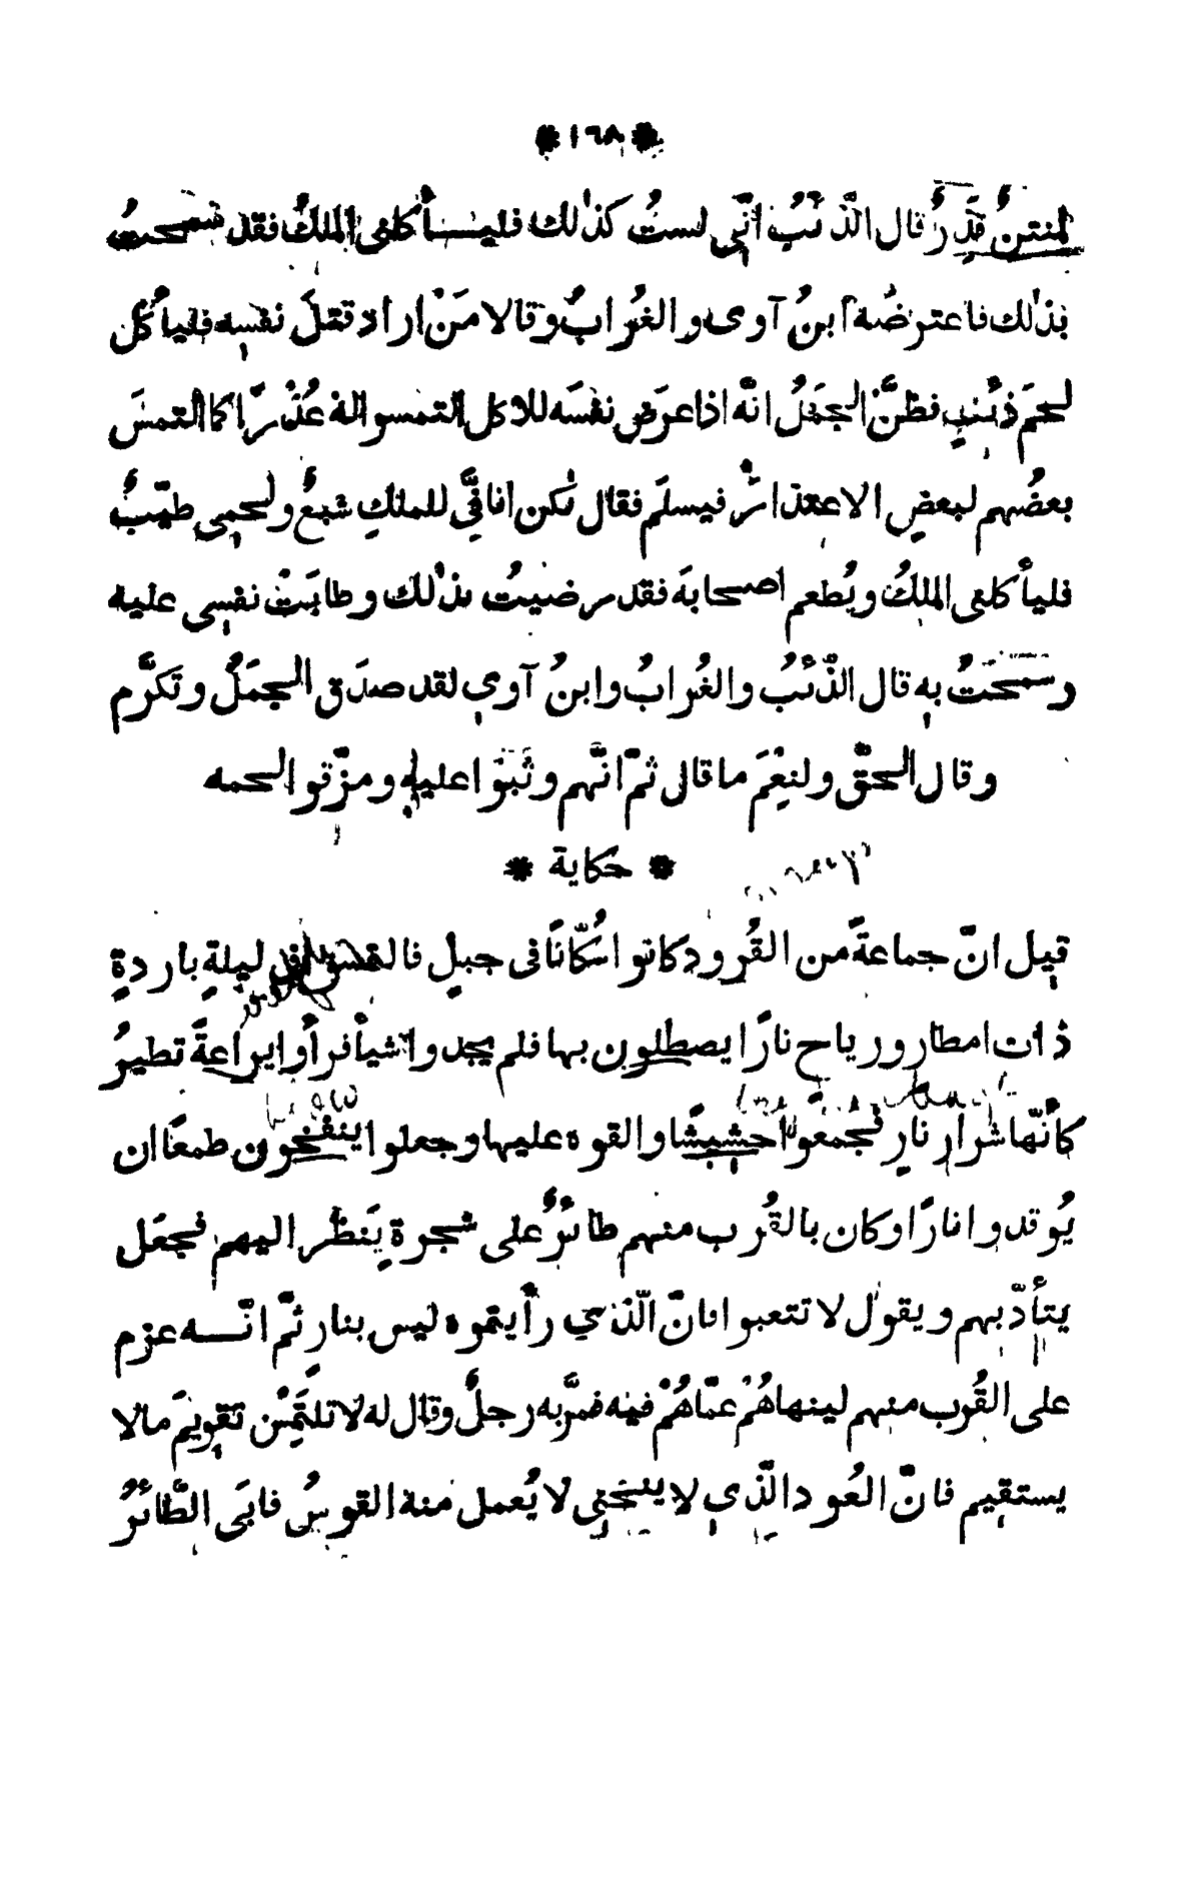 * ١٦٨ *
لمنتنٌ قَذِرٌ قال الذّئبُ انّي لستُ كذلك فليأكلنى الملكُ فقد سمحتُ
بذلك فاعترضهُ ابنُ آوى والغُرابُ وقالا مَنْ اراد قتلَ نفسِه فليأكلْ
لحمَ ذئبٍ فظنَّ الجمَلُ انّه اذا عرَض نفسَه للاكل التمسوا له عُذْرًا كما التمسَ
بعضُهم لبعضٍ الاعتذارَ فيسلَم فقال لكن انا فيَّ للملكِ شبعٌ ولحمِي طيّبٌ
فليأكلنى الملكُ ويُطعم اصحابَه فقد رضيتُ بذلك وطابَتْ نفسِى عليه
وسمحتُ بهِ قال الذّئبُ والغُرابُ وابنُ آوي لقد صدَق الجمَلُ وتكرَّم
وقال الحقّ ولنِعْمَ ما قال ثمّ انّهم وثَبَوا عليهِ ومزّقوا لحمه
* حكاية *
قيل انّ جماعةً من القُرود كانوا سُكّانًا فى جبلٍ فالتمسوا فى ليلةٍ باردةٍ
ذات امطار ورياح نارًا يصطلون بها فلم يجدوا شيأ فرأوا يراعةً تطيرُ
كأنّها شرار نارٍ فجمعُوا حشيشًا والقوه عليها وجعلوا ينفخون طمعًا ان
يُوقدوا نارًا وكان بالقُرب منهم طائرٌ على شجرةٍ يَنظُر اليهم فجعَل
يتأدّبهم ويقول لا تتعبوا فانّ الّذي رأيتموه ليس بنارٍ ثمّ انّه عزم
على القُرب منهم لينهاهُمْ عمّاهُمْ فيه فمرَّ به رجلٌ وقال له لا تلتَمِسْ تقويمَ ما لا
يستقيم فانّ العُود الّذي لا ينحنى لا يُعمل منه القوسُ فابَى الطَّائرُ